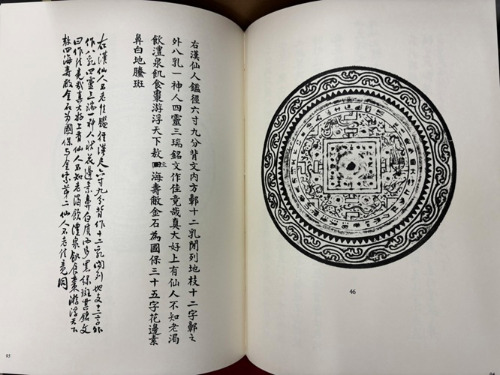 46
右漢仙人鑑徑六寸九分背文內方鄣十二乳閒列地枝十二字鄣之
外八乳一神人四靈三瑞銘文作佳竟哉真大好上有仙人不知老渴
飲澧泉飢食棗遊浮天下敖四海壽敝金石為國保三十五字花邊素
鼻白地騰斑
右漢仙人不老佳鑑徑漢尺六寸九分背作十二乳閒列地支十二字外
作八乳四靈三瑞一神人狀花邊素鼻白銘文
曰作佳竟哉真大好上有仙人不知老渴飲澧泉飢食棗游浮天下
敖四海壽敝金石為國保与金索第二仙人不老佳竟同